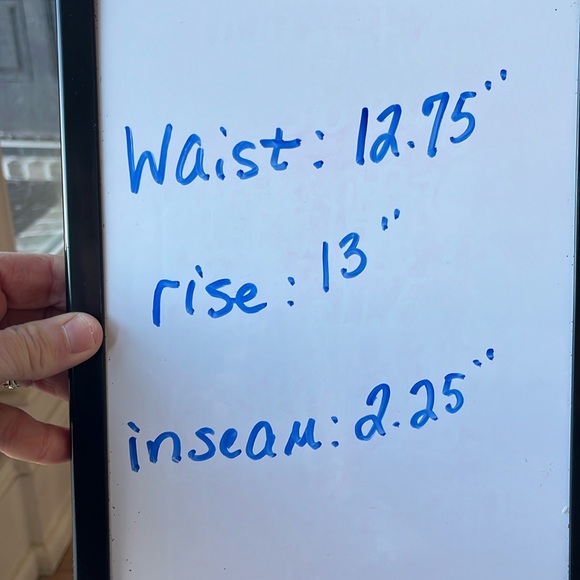 Waist: 12.75"
rise: 13"
inseam: 2.25"